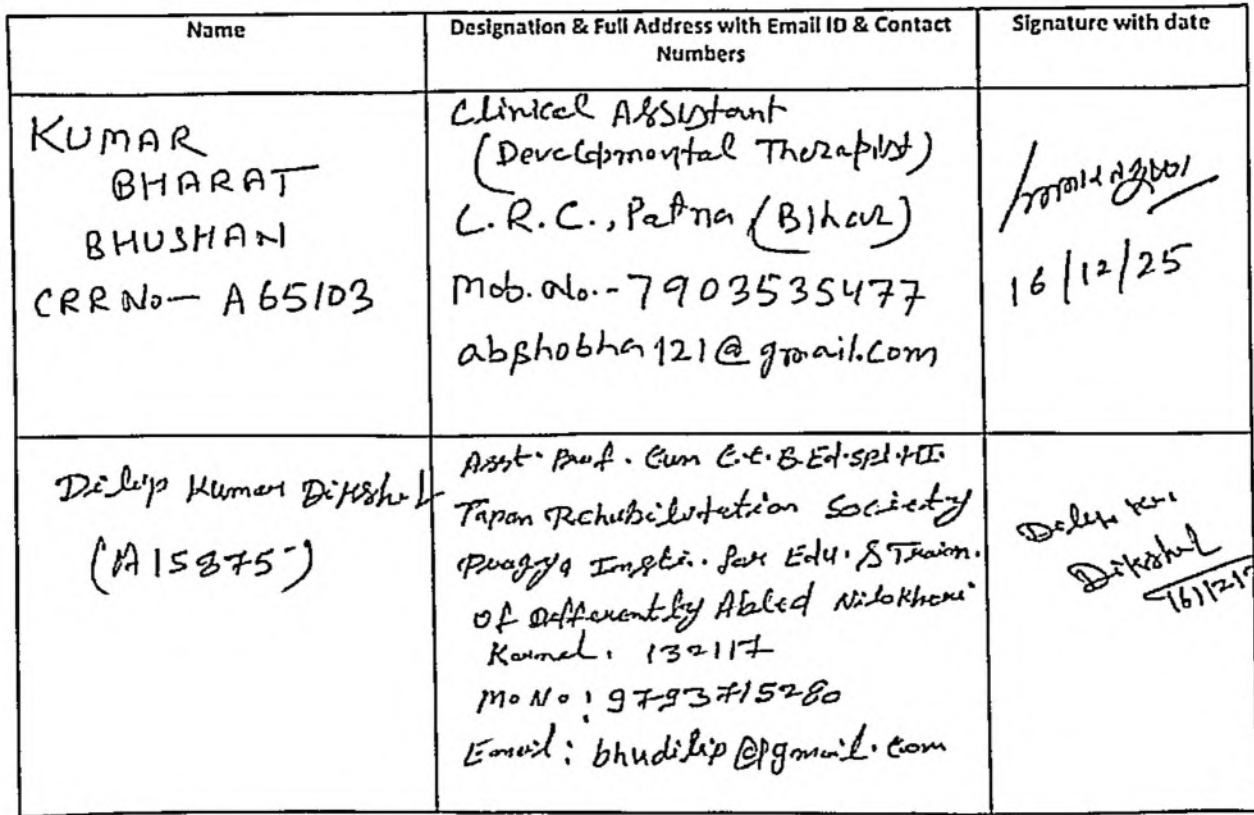 Name
Designation & Full Address with Email ID & Contact
Numbers
Signature with date
KUMAR
BHARAT
BHUSHAN
CRR No- A65103
Clinical Assistant
(Developmental Therapist)
C.R.C., Patna (Bihar)
Mob. No.- 7903535477
abshobha121@gmail.com
16/12/25
Dilip Kumar Dikshit
(A15875)
Asst. Prof. Cum C.C. B.Ed. spl. HI.
Tapan Rehabilitation Society
Pragya Insti. for Edu. & Train.
of Differently Abled Nilokheri
Karnal. 132117
Mo No: 9793715280
Email: bhudilip@gmail.com
Dilip
Dikshit